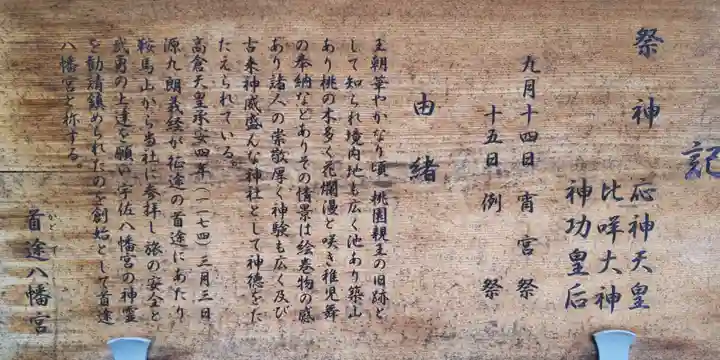 記
祭神
応神天皇
比咩大神
神功皇后
九月十四日 宵宮祭
十五日 例祭
由緒
王朝華やかなり頃 桃園親王の旧跡と
して知られ境内地も広く池あり築山
あり桃の木多く花爛漫と咲き稚児舞
の奉納などありその情景は絵巻物の感
あり諸人の崇敬厚く神験も広く及び
古来神威盛んな神社として神徳をた
たえられている。
高倉天皇承安四年(一一七四)三月三日
源九朗義経が征途の首途にあたり
鞍馬山から当社に参拝し旅の安全と
武勇の上達を願い宇佐八幡宮の神霊
を勧請鎮められたのを創始として首途
八幡宮と称する。
首途八幡宮
かどで